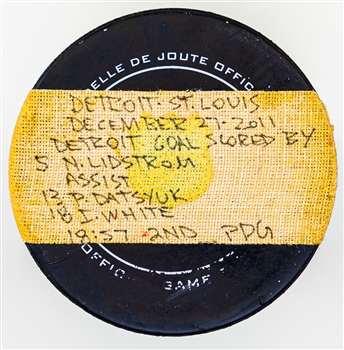 ELLE DE JOUTE OFFIC
DETROIT-ST. LOUIS
DECEMBER 27-2011
DETROIT GOAL SCORED BY
5 N. LIDSTROM
ASSIST
13 P. DATSYUK
18 I. WHITE
19:57 2ND PDG
OFFIC GAME